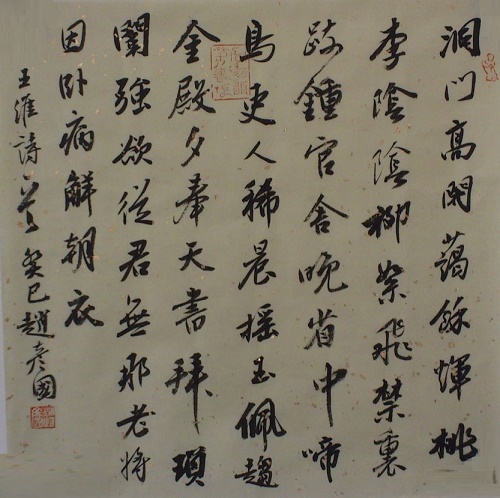 洞門高閣藹餘暉桃
李陰陰柳絮飛禁裏
疎鍾官舍晚省中啼
鳥吏人稀晨摇玉佩趨
金殿夕奉天書拜瑣
闈强欲從君無那老將
因卧病解朝衣
王維詩一首癸巳趙彦國